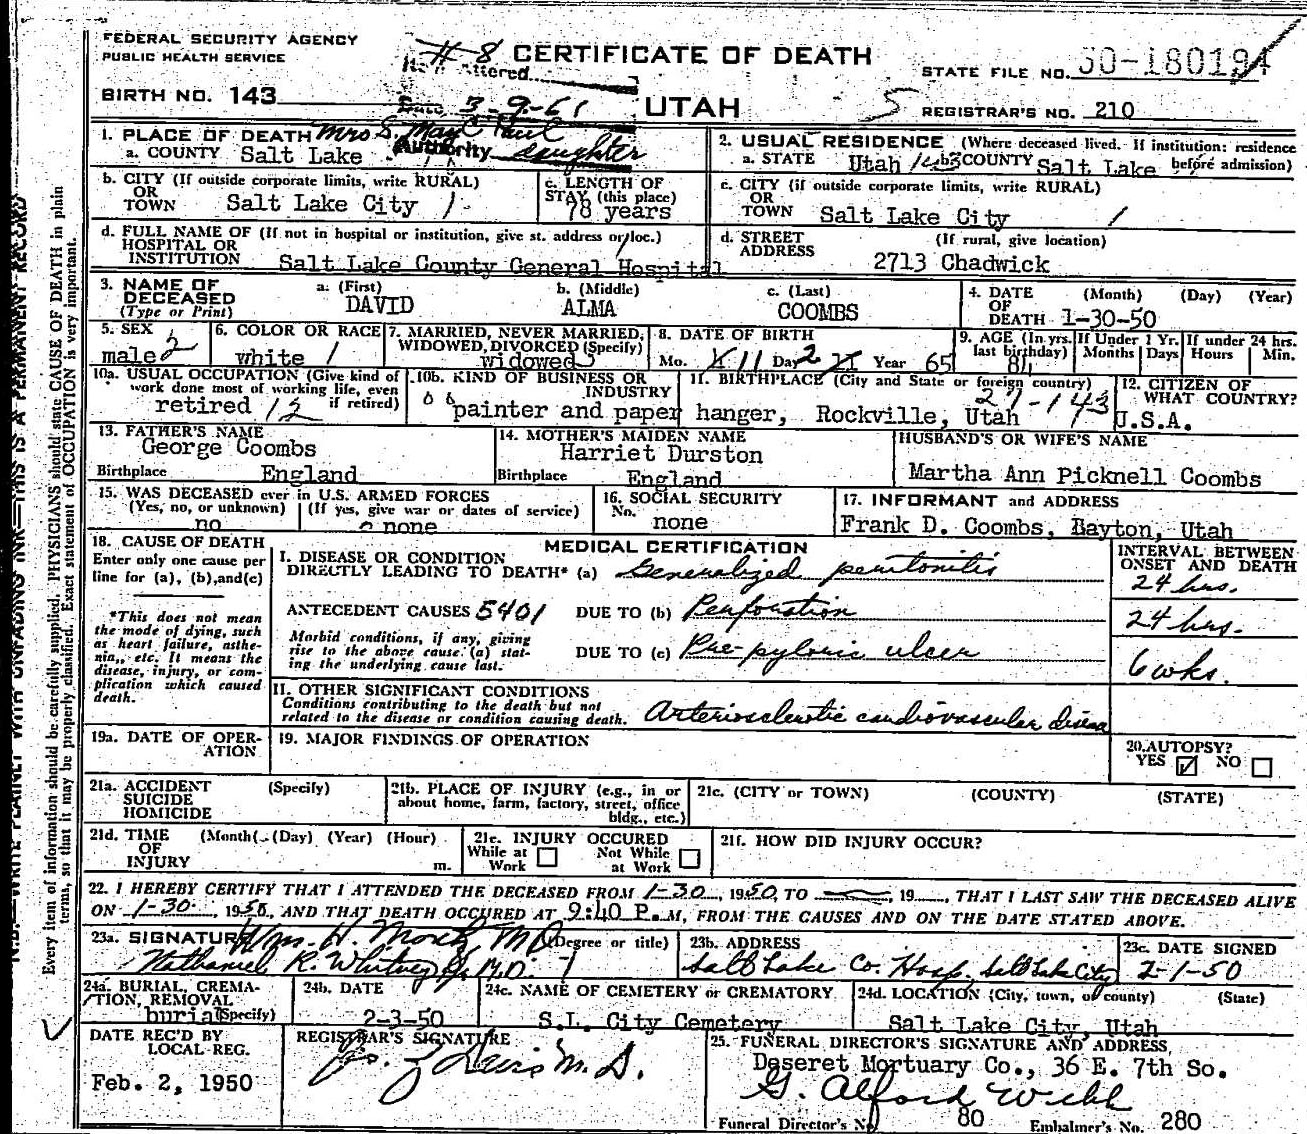 FEDERAL SECURITY AGENCY
PUBLIC HEALTH SERVICE
#8
Item Altered
CERTIFICATE OF DEATH
STATE FILE NO. 50-180194
BIRTH NO. 143
Date 3-9-61
UTAH
5
REGISTRAR'S NO. 210
1. PLACE OF DEATH
Mrs S. Paul
a. COUNTY Salt Lake
Authority daughter
2. USUAL RESIDENCE (Where deceased lived. If institution: residence before admission)
a. STATE Utah 143 b. COUNTY Salt Lake
b. CITY (If outside corporate limits, write RURAL)
OR
TOWN Salt Lake City 1
c. LENGTH OF
STAY (this place)
78 years
c. CITY (if outside corporate limits, write RURAL)
OR
TOWN Salt Lake City 1
d. FULL NAME OF (If not in hospital or institution, give st. address or loc.)
HOSPITAL OR
INSTITUTION Salt Lake County General Hospital
d. STREET (If rural, give location)
ADDRESS 2713 Chadwick
3. NAME OF
DECEASED
(Type or Print)
a. (First) b. (Middle) c. (Last)
DAVID ALMA COOMBS
4. DATE (Month) (Day) (Year)
OF
DEATH 1-30-50
5. SEX 2
male
6. COLOR OR RACE
white 1
7. MARRIED, NEVER MARRIED,
WIDOWED, DIVORCED (Specify)
widowed
8. DATE OF BIRTH
Mo. X 11 Day 2 Year 65
9. AGE (In yrs. last birthday)
84
If Under 1 Yr.
Months Days
If under 24 hrs.
Hours Min.
10a. USUAL OCCUPATION (Give kind of
work done most of working life, even
if retired)
retired 12
10b. KIND OF BUSINESS OR
INDUSTRY
painter and paper hanger,
11. BIRTHPLACE (City and State or foreign country)
27-143
Rockville, Utah
12. CITIZEN OF
WHAT COUNTRY?
U.S.A.
13. FATHER'S NAME
George Coombs
Birthplace England
14. MOTHER'S MAIDEN NAME
Harriet Durston
Birthplace England
HUSBAND'S OR WIFE'S NAME
Martha Ann Picknell Coombs
15. WAS DECEASED ever in U.S. ARMED FORCES
(Yes, no, or unknown) (If yes, give war or dates of service)
no none
16. SOCIAL SECURITY
No.
none
17. INFORMANT and ADDRESS
Frank D. Coombs, Bayton, Utah
18. CAUSE OF DEATH
Enter only one cause per
line for (a), (b), and (c)
*This does not mean
the mode of dying, such
as heart failure, asthe-
nia, etc. It means the
disease, injury, or com-
plication which caused
death.
MEDICAL CERTIFICATION
I. DISEASE OR CONDITION
DIRECTLY LEADING TO DEATH* (a) Generalized peritonitis
INTERVAL BETWEEN
ONSET AND DEATH
24 hrs.
ANTECEDENT CAUSES 5401 DUE TO (b) Perforation
24 hrs.
Morbid conditions, if any, giving
rise to the above cause (a) stat-
ing the underlying cause last.
DUE TO (c) Pre-pyloric ulcer
6 wks.
II. OTHER SIGNIFICANT CONDITIONS
Conditions contributing to the death but not
related to the disease or condition causing death. Arteriosclerotic cardiovascular disease
19a. DATE OF OPER-
ATION
19. MAJOR FINDINGS OF OPERATION
20. AUTOPSY?
YES ☑ NO ☐
21a. ACCIDENT (Specify)
SUICIDE
HOMICIDE
21b. PLACE OF INJURY (e.g., in or
about home, farm, factory, street, office
bldg., etc.)
21c. (CITY or TOWN) (COUNTY) (STATE)
21d. TIME (Month) (Day) (Year) (Hour)
OF
INJURY m.
21e. INJURY OCCURED
While at Work ☐ Not While at Work ☐
21f. HOW DID INJURY OCCUR?
22. I HEREBY CERTIFY THAT I ATTENDED THE DECEASED FROM 1-30, 1950, TO , 19 , THAT I LAST SAW THE DECEASED ALIVE
ON 1-30, 1950, AND THAT DEATH OCCURED AT 9:40 P.M, FROM THE CAUSES AND ON THE DATE STATED ABOVE.
23a. SIGNATURE (Degree or title)
Wm. H. Moretz, MD
Nathaniel R. Whitney Jr. M.D. 1
23b. ADDRESS
Salt Lake Co. Hosp, Salt Lake City
23c. DATE SIGNED
2-1-50
24a. BURIAL, CREMA-
TION, REMOVAL
burial (Specify)
24b. DATE
2-3-50
24c. NAME OF CEMETERY or CREMATORY
S.L. City Cemetery
24d. LOCATION (City, town, or county) (State)
Salt Lake City, Utah
DATE REC'D BY
LOCAL REG.
Feb. 2, 1950
REGISTRAR'S SIGNATURE
M.D.
25. FUNERAL DIRECTOR'S SIGNATURE AND ADDRESS
Deseret Mortuary Co., 36 E. 7th So.
G. Alford Webb
Funeral Director's No. 80 Embalmer's No. 280
N.B.—WRITE PLAINLY WITH UNFADING INK—THIS IS A PERMANENT RECORD
Every item of information should be carefully supplied. PHYSICIANS should state CAUSE OF DEATH in plain
terms, so that it may be properly classified. Exact statement of OCCUPATION is very important.